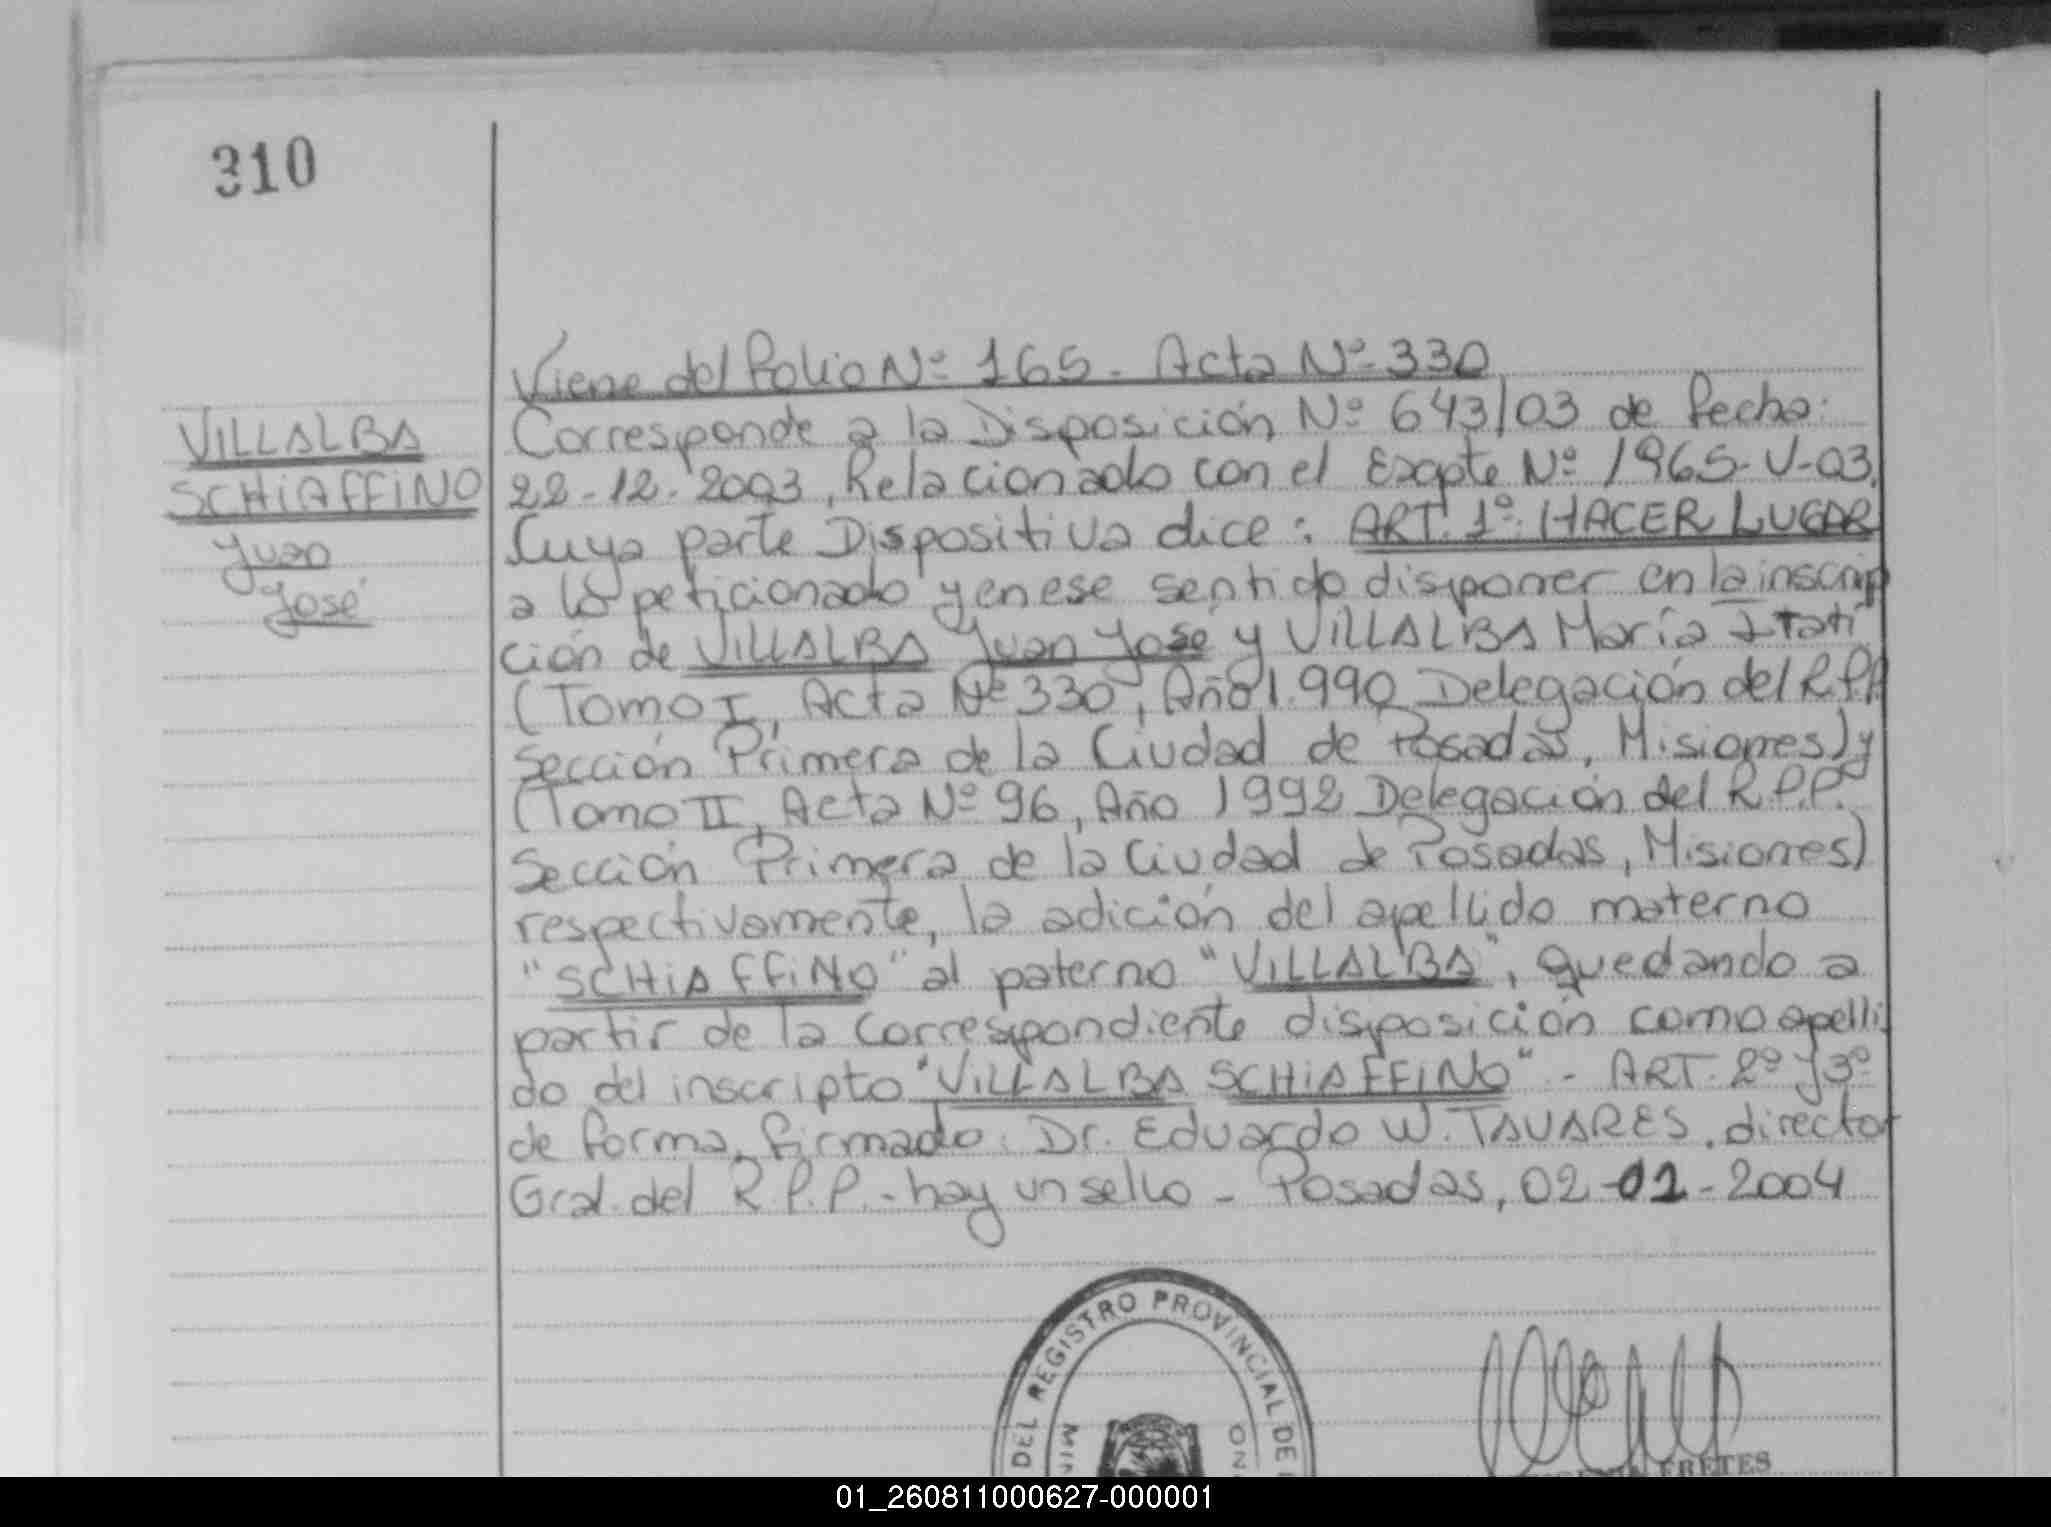 310
Viene del folio Nº 165. Acta Nº 330
VILLALBA
SCHIAFFINO
Juan
José
Corresponde a la Disposición Nº 643/03 de fecha:
22-12-2003, Relacionado con el Expte Nº 1965-V-03.
Cuya parte Dispositiva dice: ART. 1º: HACER LUGAR
a lo peticionado y en ese sentido disponer en la inscrip
ción de VILLALBA Juan José y VILLALBA María Itatí
(Tomo I, Acta Nº 330, Año 1.990 Delegación del R.P.P.
Sección Primera de la Ciudad de Posadas, Misiones) y
(Tomo II, Acta Nº 96, Año 1992 Delegación del R.P.P.
Sección Primera de la Ciudad de Posadas, Misiones)
respectivamente, la adición del apellido materno
"SCHIAFFINO" al paterno "VILLALBA", quedando a
partir de la correspondiente disposición como apelli
do del inscripto "VILLALBA SCHIAFFINO" - ART. 2º y 3º
de forma, firmado: Dr. Eduardo W. TAVARES. director
Gral. del R.P.P. - hay un sello - Posadas, 02-01-2004
DEL REGISTRO PROVINCIAL DE
FRETES
01_260811000627-000001